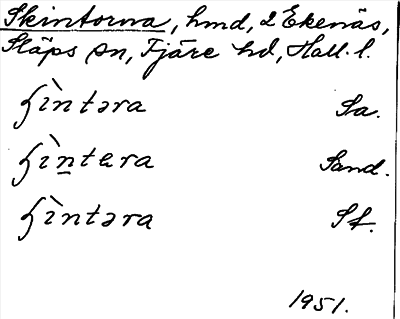 Skintorna, hmd, 2 Ekenäs,
Släps sn, Fjäre hd, Hall. l.
ɧìntəra Sa.
ɧìn̲tɐra Sand.
ɧìntəra Sf.
1951.